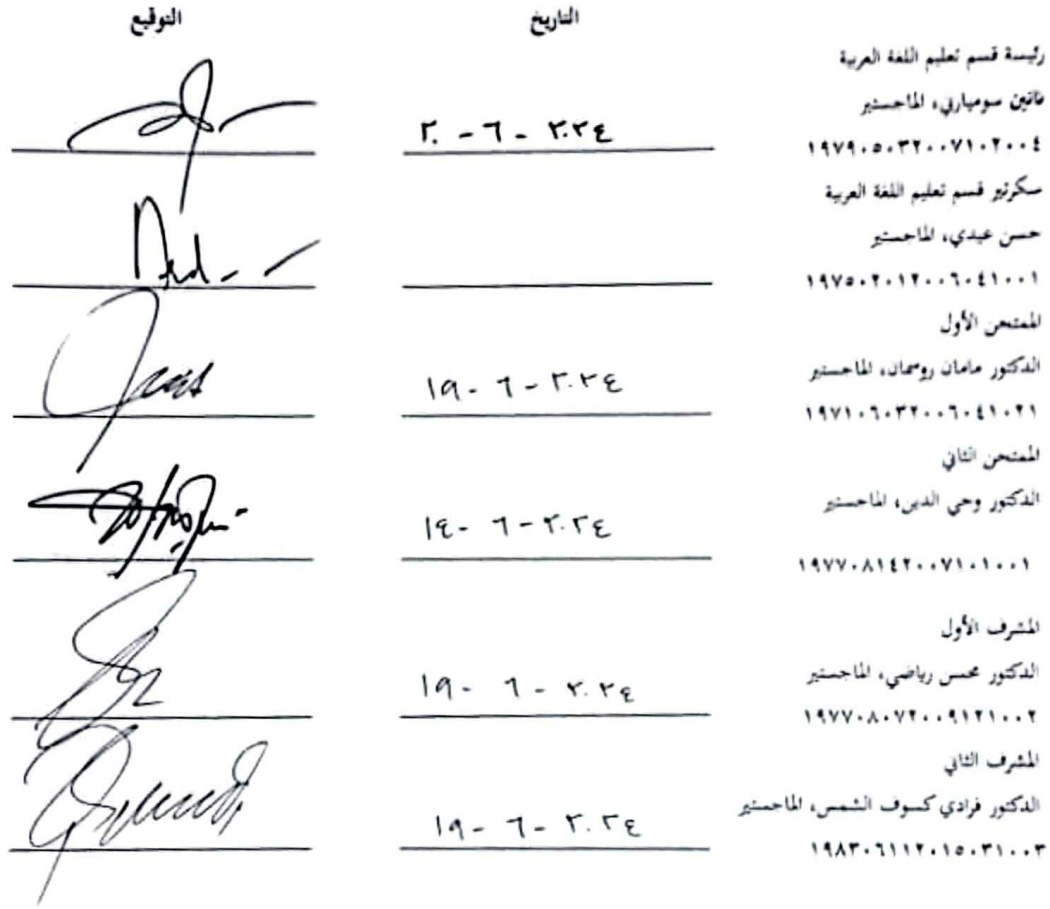 التاريخ التوقيع
رئيسة قسم تعليم اللغة العربية
نانين سوميارني، الماجستير
١٩٧٩٠٥٠٣٢٠٠٧١٠٢٠٠٤ ٢٠-٦-٢٠٢٤
سكرتير قسم تعليم اللغة العربية
حسن عيدي، الماجستير
١٩٧٥٠٢٠١٢٠٠٦٠٤١٠٠١
الممتحن الأول
الدكتور مامان روسمان، الماجستير
١٩-٦-٢٠٢٤
١٩٧١٠٦٠٣٢٠٠٦٠٤١٠٢١
الممتحن الثاني
الدكتور وحي الدين، الماجستير
١٤-٦-٢٠٢٤
١٩٧٧٠٨١٤٢٠٠٧١٠١٠٠١
المشرف الأول
الدكتور محسن رياضي، الماجستير
١٩-٦-٢٠٢٤
١٩٧٧٠٨٠٧٢٠٠٩١٢١٠٠٢
المشرف الثاني
الدكتور فرادي كسوف الشمس، الماجستير
١٩-٦-٢٠٢٤
١٩٨٣٠٦١١٢٠١٥٠٣١٠٠٣